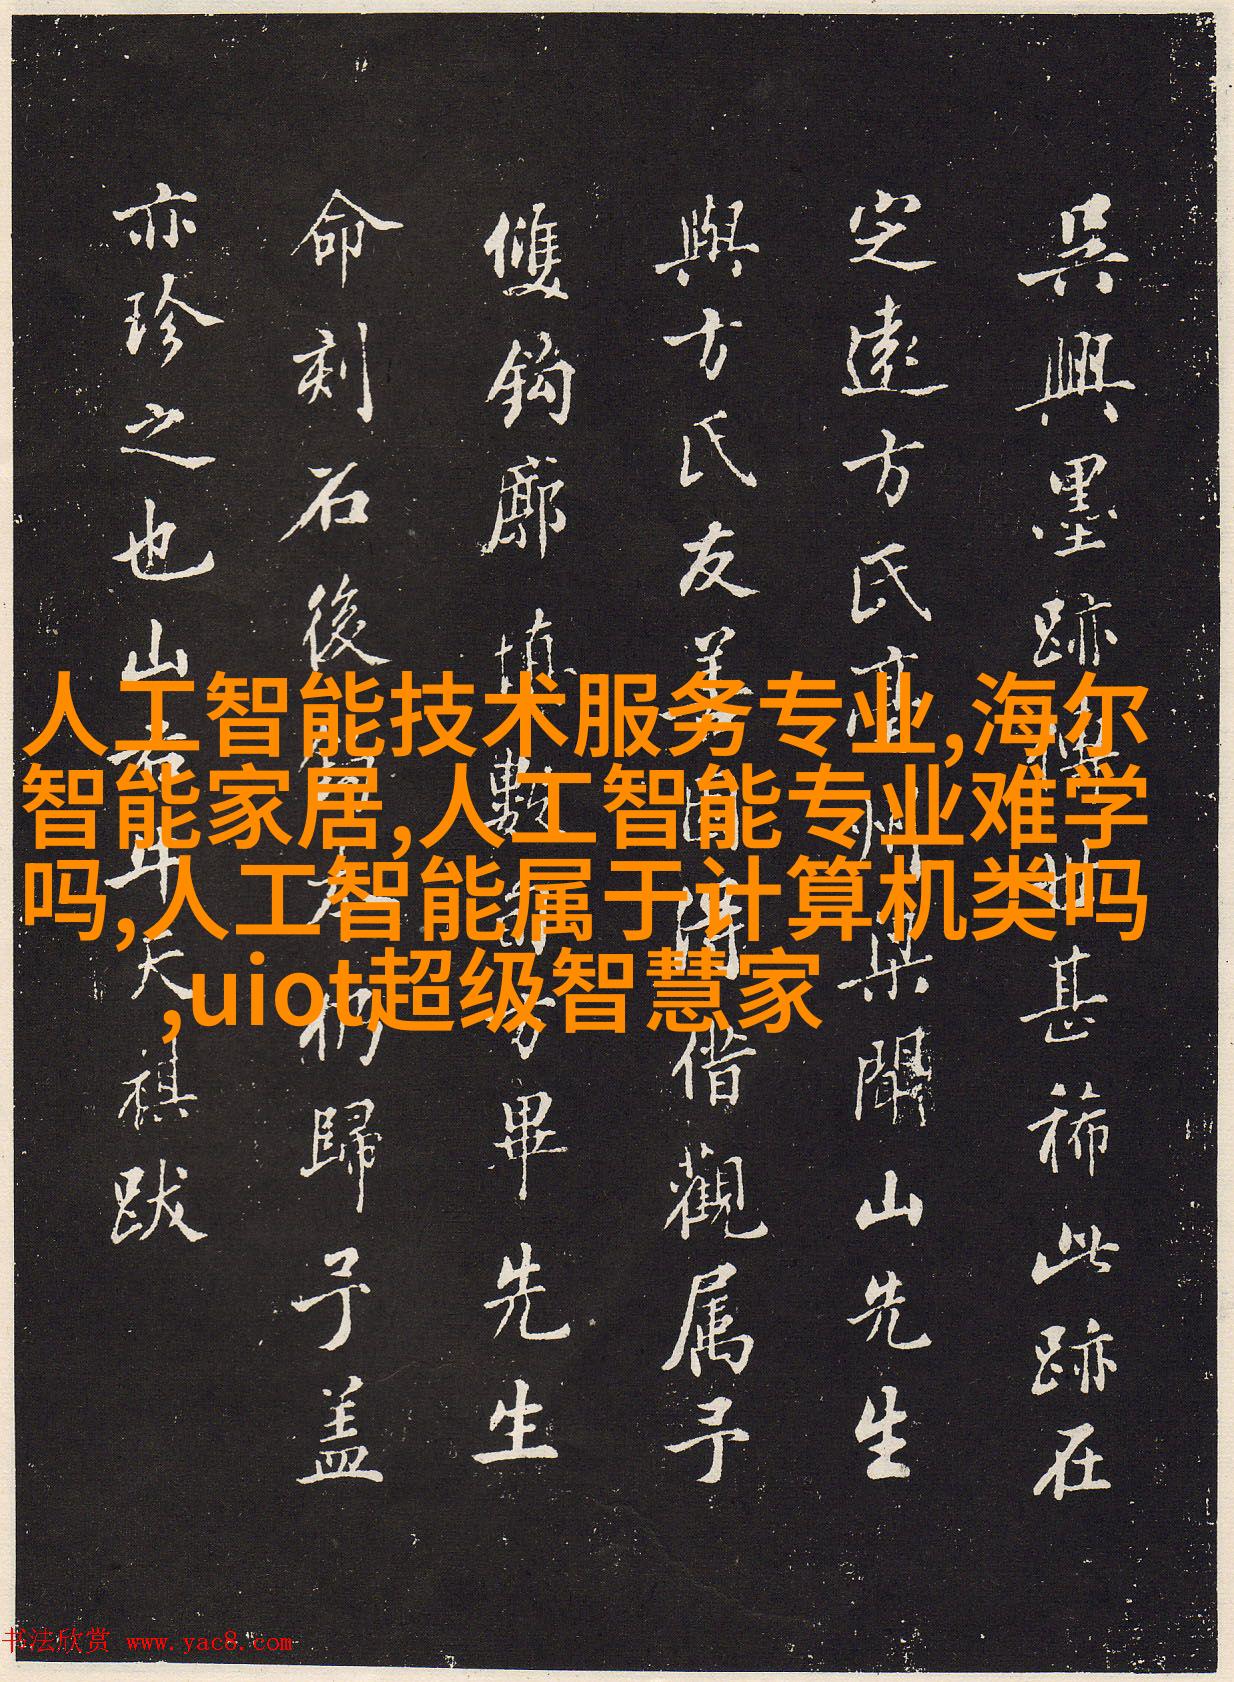 吳興墨跡甚稀此跡在
定遠方氏亳州梁聞山先生
與方氏友善因得借觀属予
雙鈎廓填數方畢先生
命刻石後仍歸予盖
亦珍之也山右牛天祺跋
人工智能技术服务专业,海尔
智能家居,人工智能专业难学
吗,人工智能属于计算机类吗
,uiot超级智慧家
书法欣赏 www.yac8.com